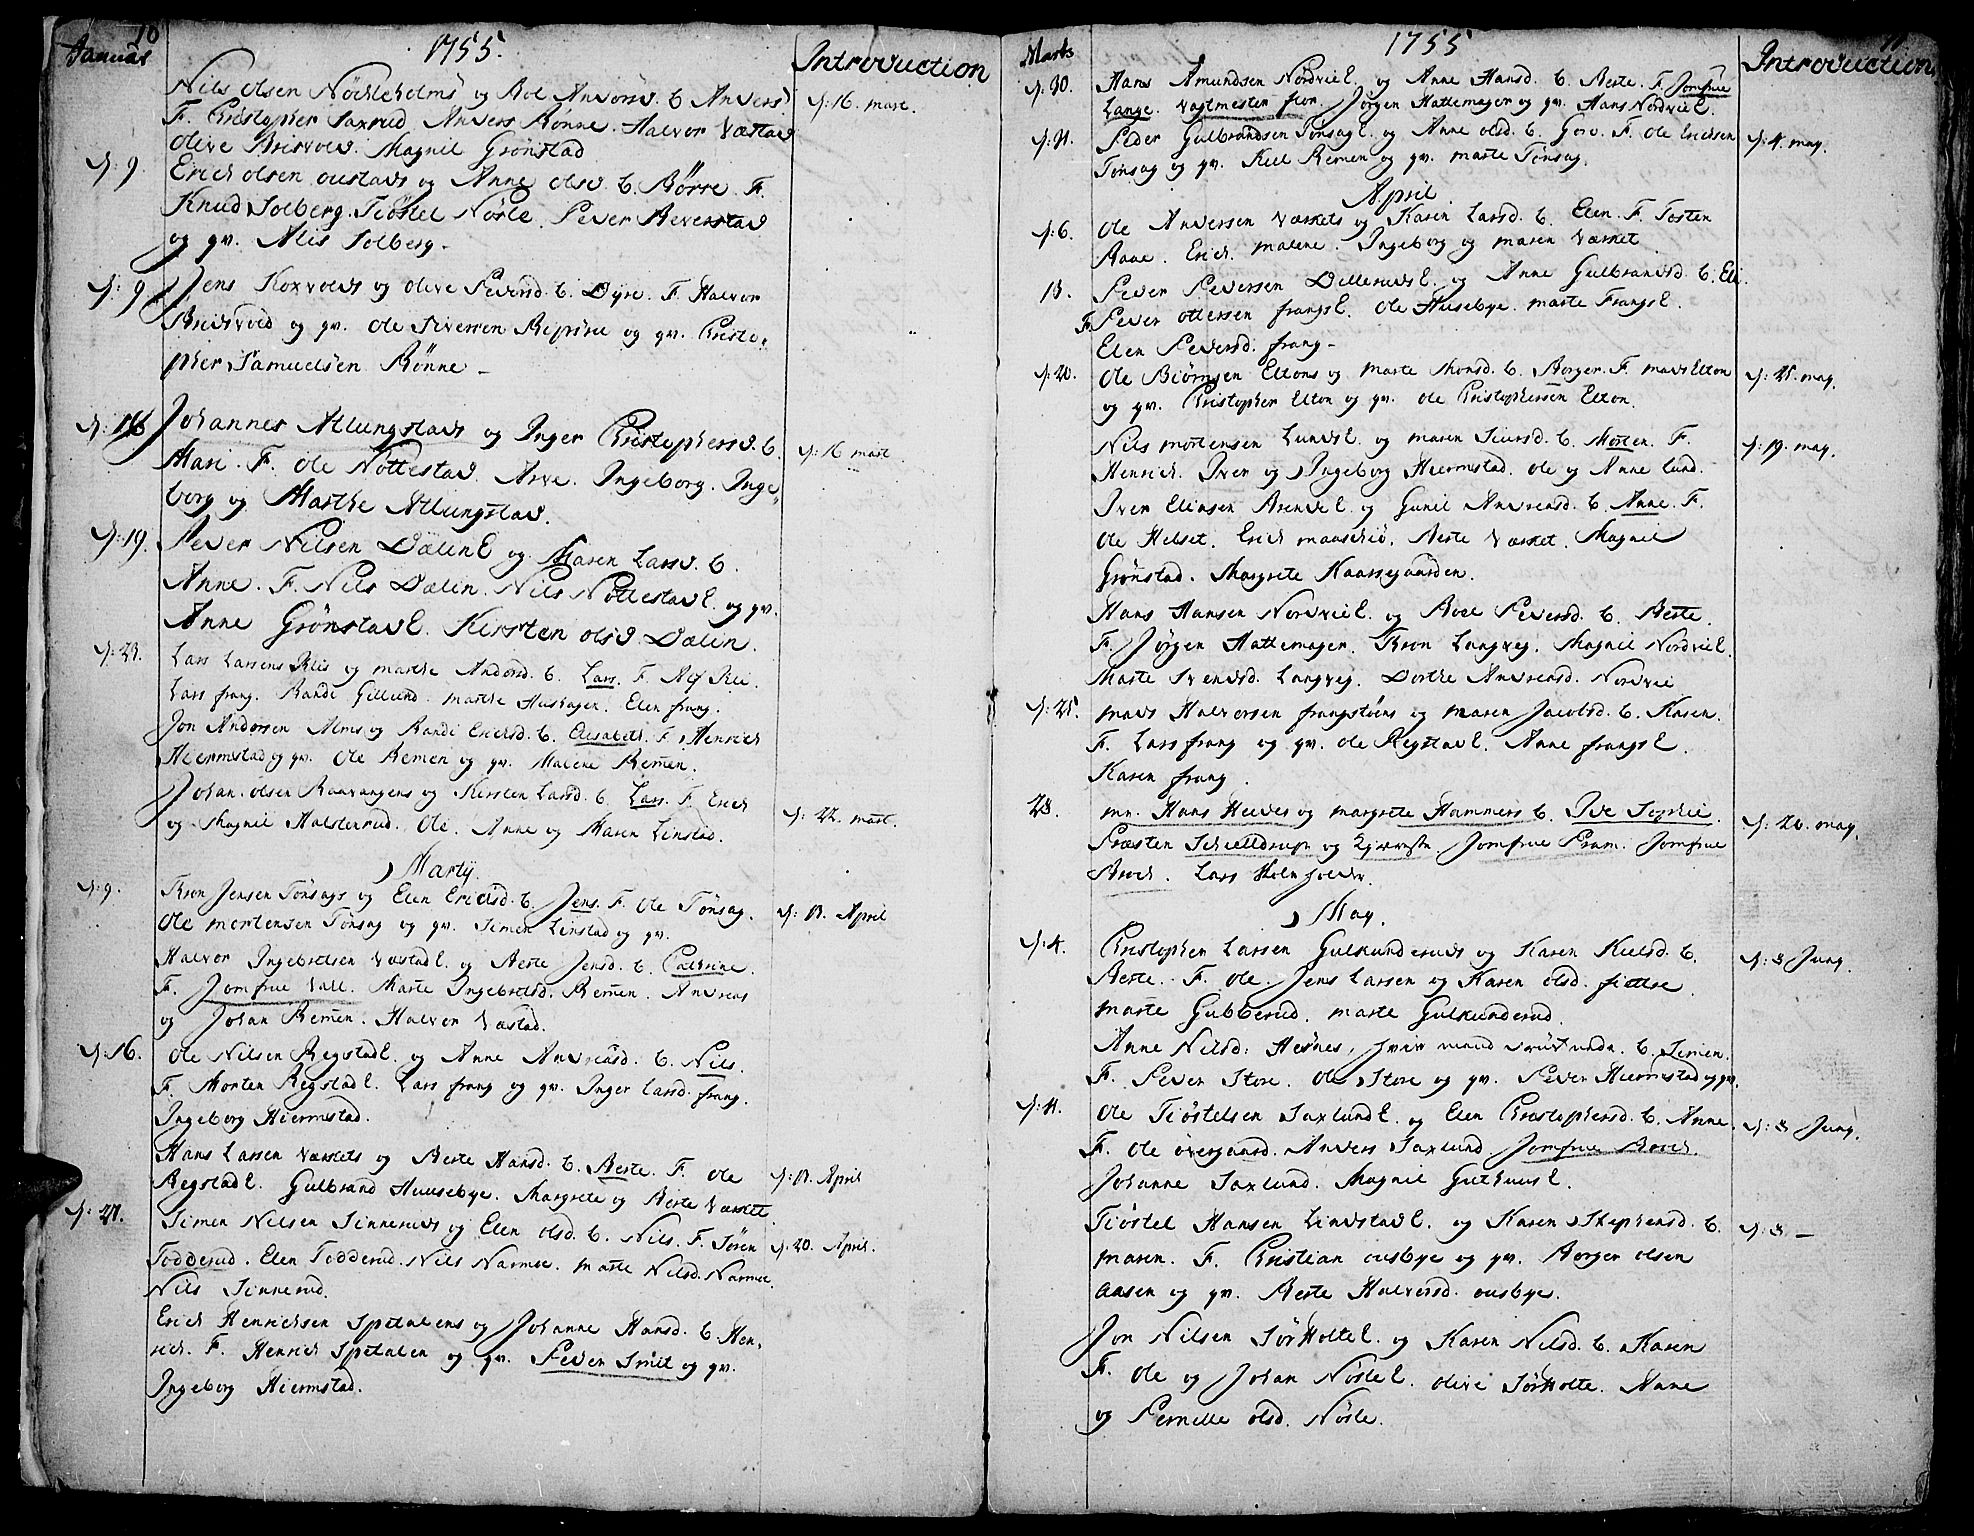 10
Januar 1755. Introduction
Nils Olsen Nöchleholms og Boel Andersd. b. Anders
F. Christopher Saxrud Anders Rönne. Halvor Væstad
d: 16. mart.
Olive Brisvold. Magnil Grönstad
d: 9. Erich Olsen oustads og Anne Olsd. b. Börre. F.
Knud Solberg. Tiöstel Nösle. Peder Beverstad
og qv. Alis Solberg.
d: 9 Jens Koxvolds og Olive Pedersd. b. Dyre. F. Halvor
Bridsvold og qv. Ole Siversen og qv. Christo,
pher Samuelsen Rönne
Johannes Atlungstads og Inger Christophersd. b.
Mari. F. Ole Nöttestad. Arve. Ingeborg. Inge,
d: 16 mart.
borg og Marthe Atlungstad.
d: 19. Peder Nilsen Dælin E og Maren Larsd. b.
Anne. F. Nils Dælin. Nils Nöttestad E. og qv.
Anne Grönstad E. Kirsten Olsd. Dælin.
d: 23. Lars Larsens Klis og marthe Andersd. b. Lars. F. Alf Klii.
Lars frang. Randi Gillund. marthe Huskagen. Elen frang.
Jon Andersen Alms og Randi Erichsd. b. Elisabeth. F. Henrich
Hiermstad og qv. Ole Remen og qv. Malene Remen.
Johan Olsen Raavangens og Kirsten Larsd. b. Lars. F. Erich
og Magnil Halsterud. Ole. Anne og Maren Linstad.
d: 22. mart.
Martij.
d: 9. Tron Jensen Tönsags og Elen Erichsd. b. Jens. F. Ole Tönsag.
Ole mortensen Tönsag og qv. Simen Linstad og qv.
d: 13. April
Halvor Ingebretsen Væstad E. og Berte Jensd. b. Cathrine.
F. Jomfrue Vall. Marte Ingebretsd. Remen. Andreas
og Johan Remen. Halvor Væstad.
d: 16. Ole Nilsen Regstad E. og Anne Andreasd. b. Nils.
F. Morten Regstad E. Lars frang og qv. Inger Larsd. frang.
Ingeborg Hiermstad.
Hans Larsen Værkets og Berte Hansd. b. Berte. F. Ole
Regstad E. Gulbrand Huusebye. Margrete og Berte Værket
d: 13. April
Simen Nilsen Sinneruds og Elen Olsd. b. Nils. F. Sören
Todderud. Elen Todderud. Nils Narmoe. marte Nilsd. Narmoe
d: 20. April.
Nils Sinnerud.
Erich Henrichsen Spetalens og Johanne Hansd. b. Hen,
rich. F. Henrich Spetalen og qv. Peder Smit og qv.
Ingeborg Hiermstad.
11
Marts 1755 Introduction
d: 30. Hans Amundsen Nordvie E. og Anne Hansd. b. Berte. F. Jomfrue
Lange. Jörgen Hattemager og qv. Hans Nordvie E.
Peder Gulbrandsen Tönsag E. og Anne Olsd. b. F. Ole Erichsen
d: 4. may.
Tönsag og qv. Kiel Remen og qv. marte Tönsag.
April
d: 6. Ole Andersen Værkets og Karen Larsd. b. Elen. F. Tosten
Aane. Erich. malene. Ingeborg og maren Værket
13. Peder Pedersen Dillerud E. og Anne Gulbrandsd. b. Eli.
F. Peder Ottersen frangs E. Ole Husebye. marte Frangs E.
Elen Pedersd. frang
d: 20. Ole Biörnsen Eltons og marte Monsd. b. Borger. F. mads Elton
og qv. Christopher Elton og qv. Ole Christophersen Elton.
d: 25. may.
Nils mortensen Lunds E. og maren Siversd. b. Morten. F.
Henrich. Iver og Ingeborg Hiermstad. Ole og Anne Lund.
d: 19. may.
Iver Eliesen E. og Gunil Andreasd. b. Anne. F.
Ole Helset. Erich. Berte Værket. Magnil
Grönstad. Margrete Kaarsgaarden.
Hans Hansen Nordvie E. og Boel Pedersd. b. Berte.
F. Jörgen Hattemager. Tron Langvej. Magnil Nordvie E.
Marte Svensd. Langvej. Dorthe Andreasd. Nordvie
d: 25. mads Halvorsen frangstöens og maren Jacobsd. b. Karen.
F. Lars frang og qv. Ole Regstad E. Anne frangs E.
Karen frang.
28. mr. Hans Heedes og margrette Hammers b. Ide Sophie.
Præsten Schielldrup og Jomfrue Pram. Jomfrue
d: 26. may.
Broch. Lars Holm
May.
d: 4. Christopher Larsen Gulkunderuds og Karen Kielsd. b.
Berte. F. Ole. Jens Larsen og Karen Olsd. fiælse.
d: 8 Juny.
marte Gubberud. marte Gulkunderud.
Anne Nilsd. Hesnes, b. Simen.
F. Peder Store. Ole Store og qv. Peder Hiermstad og qv.
d: 11. Ole Tiöstelsen Saxlund E. og Elen Christophersd. b. Anne.
F. Ole övergaard. Anders Saxlund Jomfrue Broch.
d: 8 Juny.
Johanne Saxlund. Magnil Guthuus E.
Tiöstel Hansen Lindstad E. og Karen Stephensd. b.
maren. F. Christian ousbye og qv. Borger Olsen
d: 8 –
Aasen og qv. Berte Halvorsd. ousbye.
Jon Nilsen Sörholte E. og Karen Nilsd. b. Karen
F. Ole og Johan Nösle E. Olive Sörholte. Anne
og Pernille Olsd. Nösle.